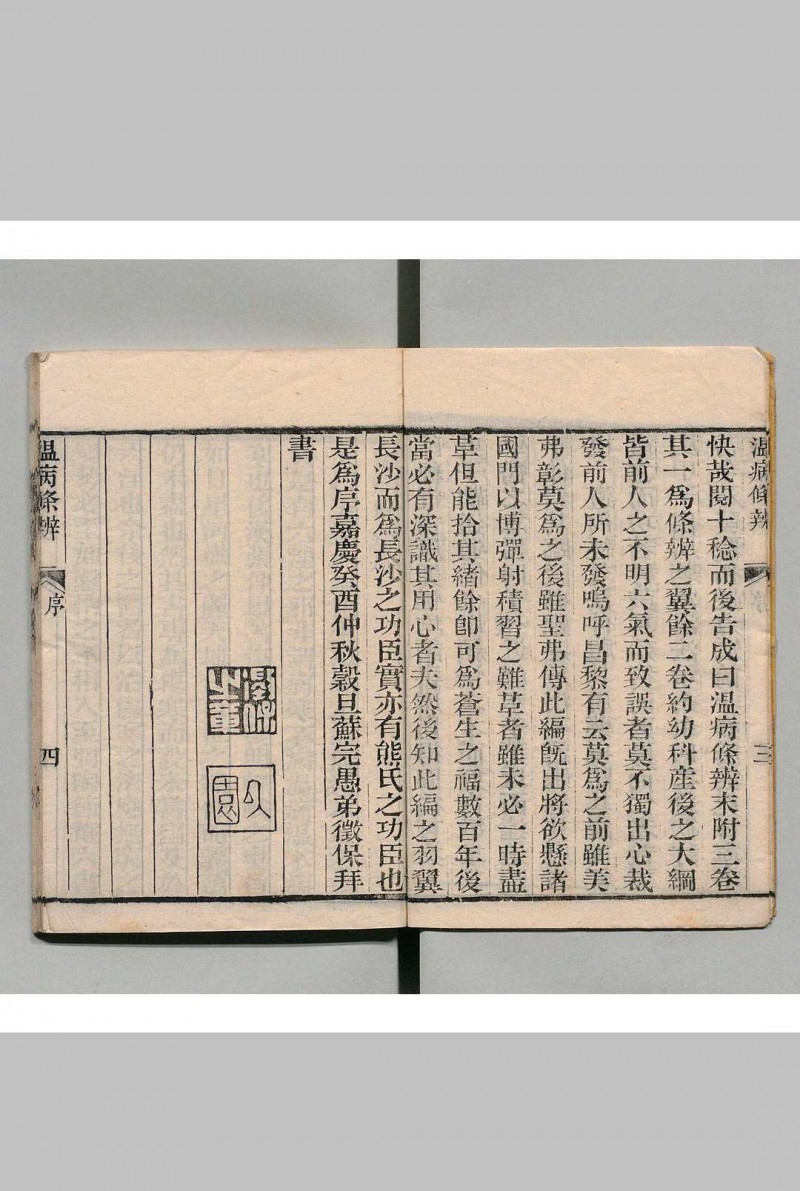 溫病條辨
三
快哉閱十稔而後告成曰溫病條辨末附三卷
其一爲條辨之翼餘二卷約幼科產後之大綱
皆前人之不明六氣而致誤者莫不獨出心裁
發前人所未發嗚呼昌黎有云莫爲之前雖美
弗彰莫爲之後雖聖弗傳此編旣出將欲懸諸
國門以博彈射積習之難革者雖未必一時盡
革但能拾其緒餘卽可爲蒼生之福數百年後
當必有深識其用心者夫然後知此編之羽翼
長沙而爲長沙之功臣實亦有熊氏之功臣也
是爲序嘉慶癸酉仲秋穀旦蘇完愚弟徵保拜
書
溫病條辨
序
四